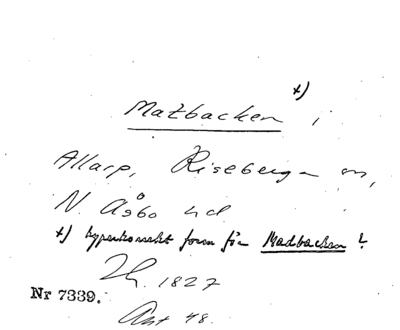 x)
Matbacken i
Allarp, Riseberga sn,
N. Åsbo hd
x) hyperkorrekt form för Madbacken?
Lh. 1827
Nr 7339.
Ant 48.